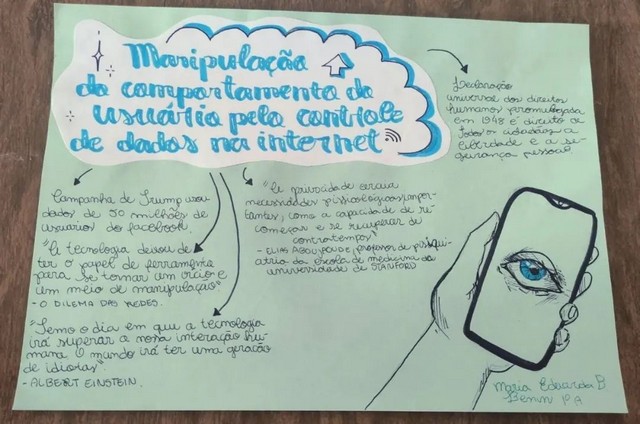 Manipulação
do comportamento do
usuário pelo controle
de dados na internet
Declaração
universal dos direitos
humanos promulgada
em 1948 é direito de
todos os cidadãos a
liberdade e a se-
gurança pessoal
Campanha de Trump usou
dados de 50 milhões de
usuarios do facebook.
"A tecnologia deixou de
ter o papel de ferramenta
para se tornar um vício e
um meio de manipulação"
- O DILEMA DAS REDES.
"A privacidade sacia
necessidades psicologicas impor-
tantes, como a capacidade de re-
começar e se recuperar de
contratempos"
- ELIAS ABOUJAOUDE, professor de psiqui-
atria da escola de medicina da
universidade de STANFORD
"Temo o dia em que a tecnologia
irá superar a nossa interação hu-
mana. O mundo irá ter uma geração
de idiotas"
- ALBERT EINSTEIN.
Maria Eduarda B